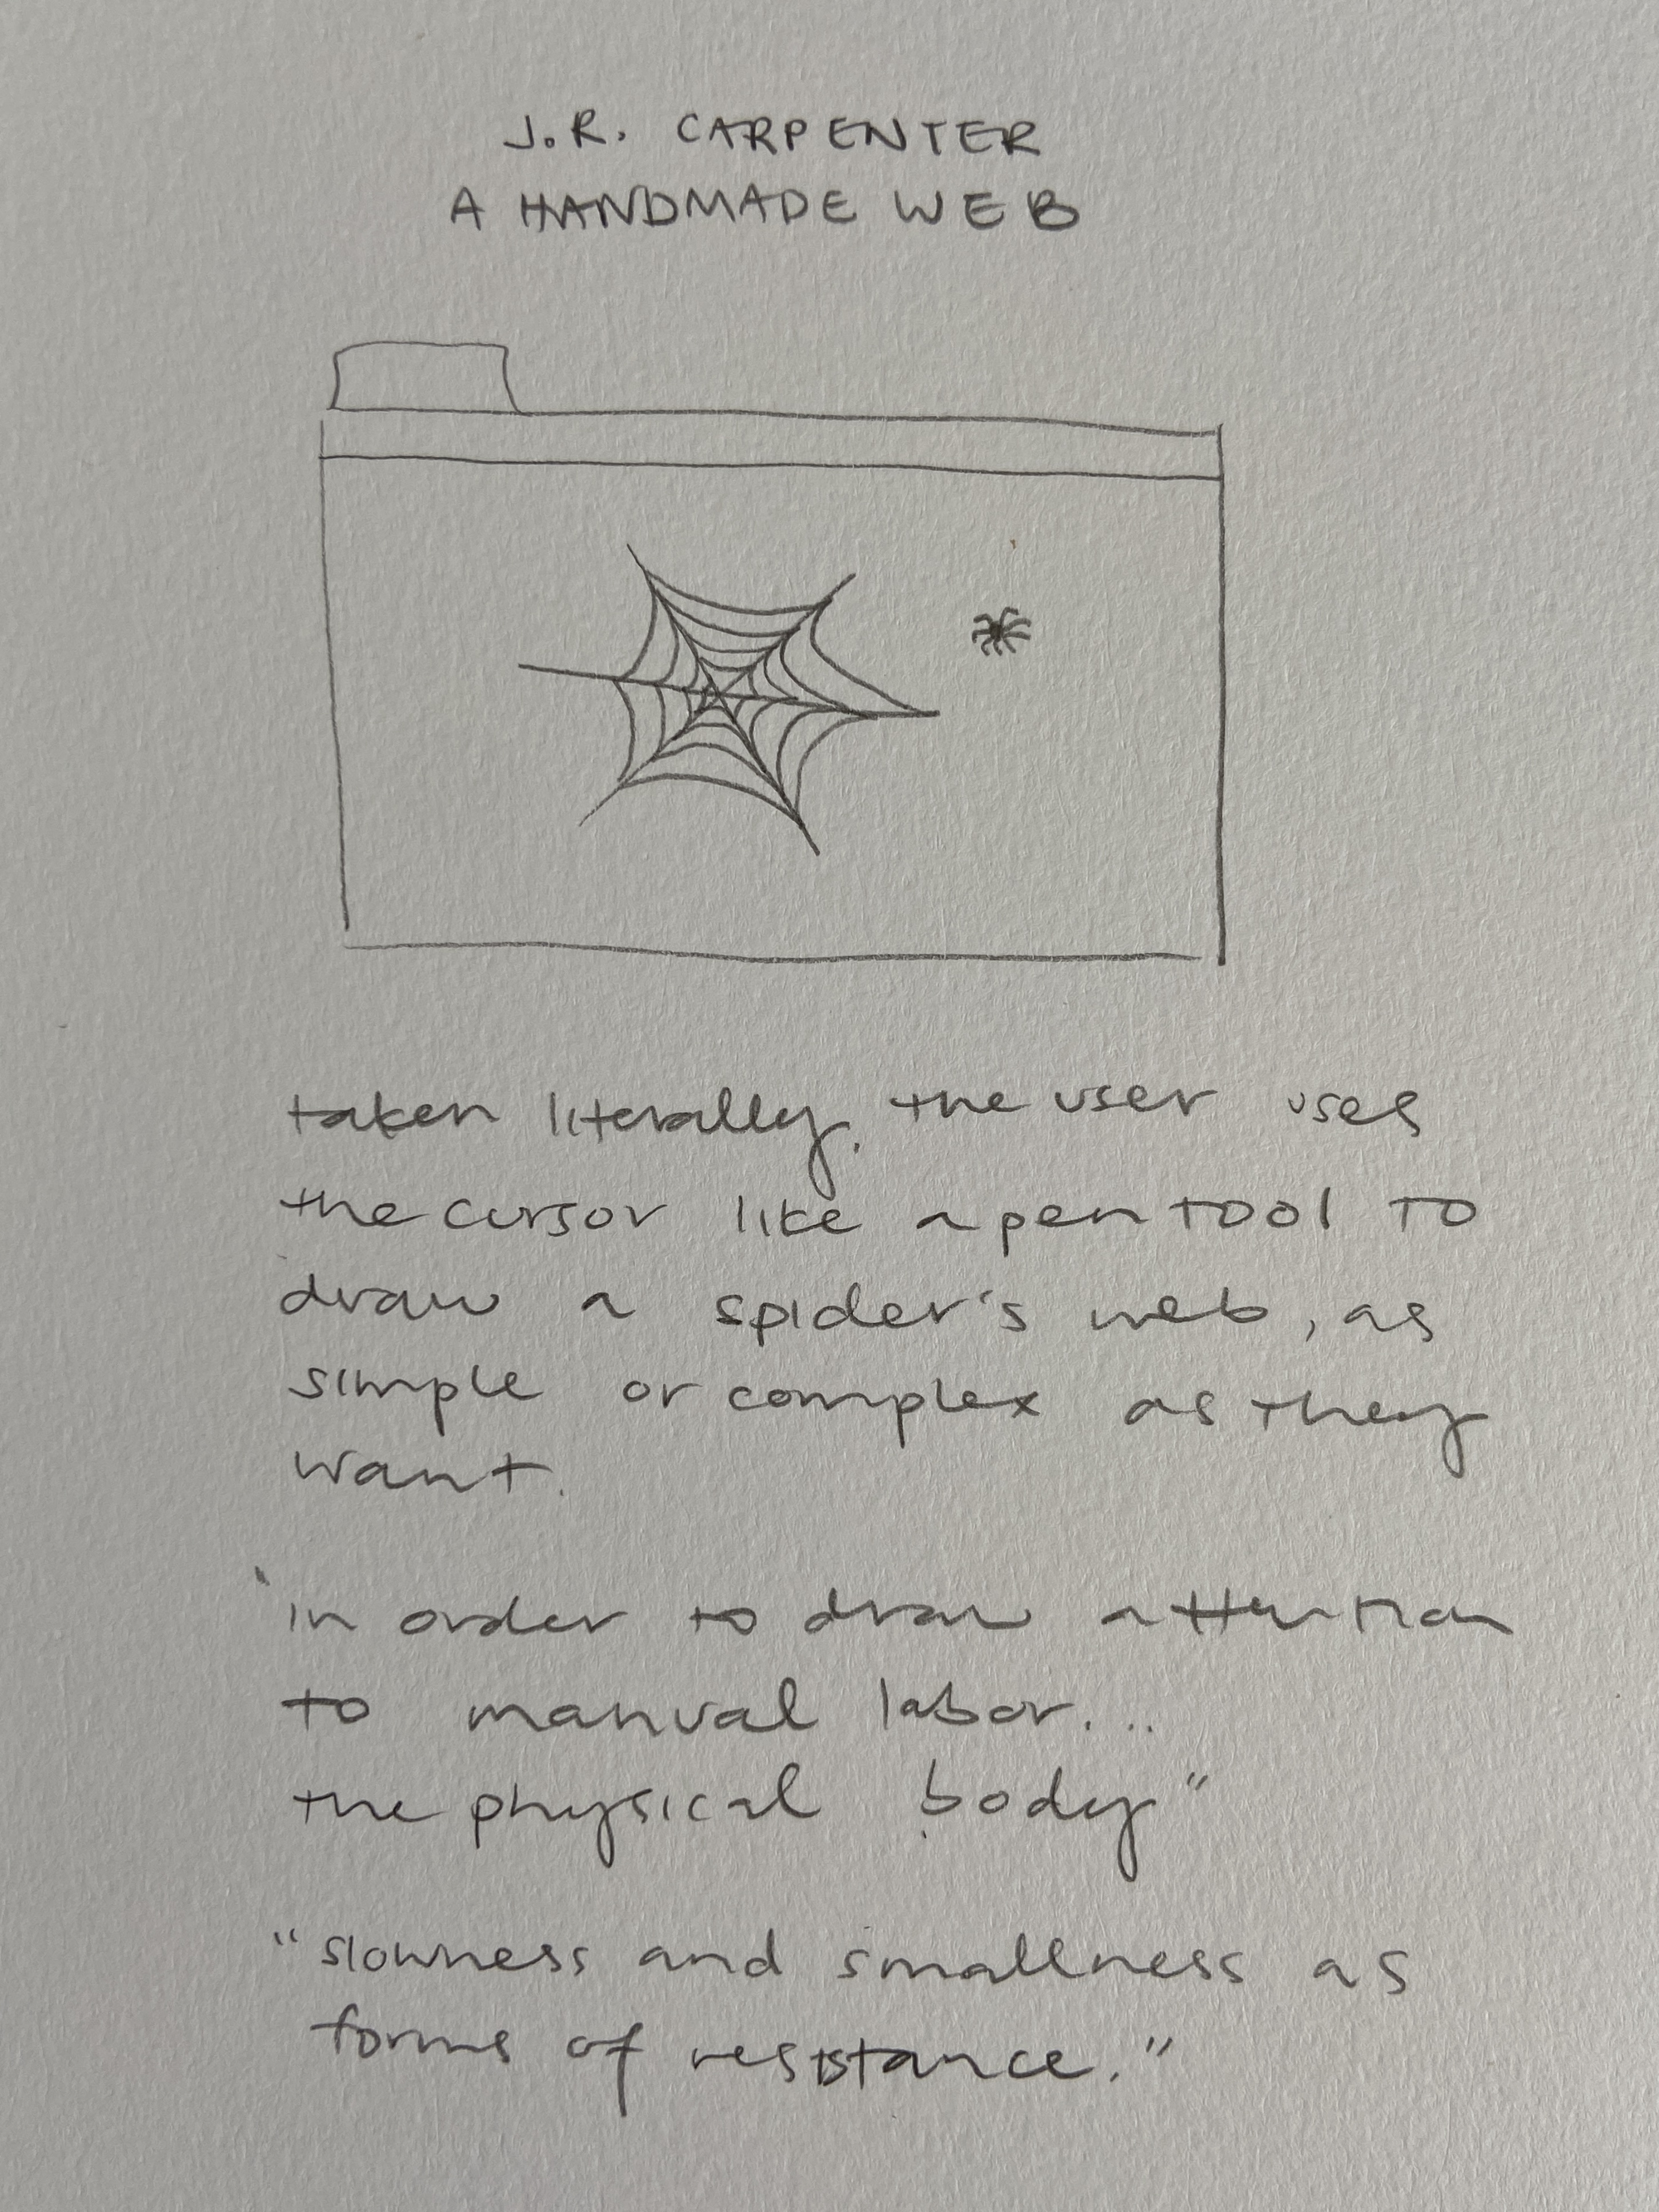 J.R. CARPENTER
A HANDMADE WEB
taken literally, the user uses
the cursor like a pen tool to
draw a spider's web, as
simple or complex as they
want.
'in order to draw attention
to manual labor...
the physical body"
"slowness and smallness as
forms of resistance."